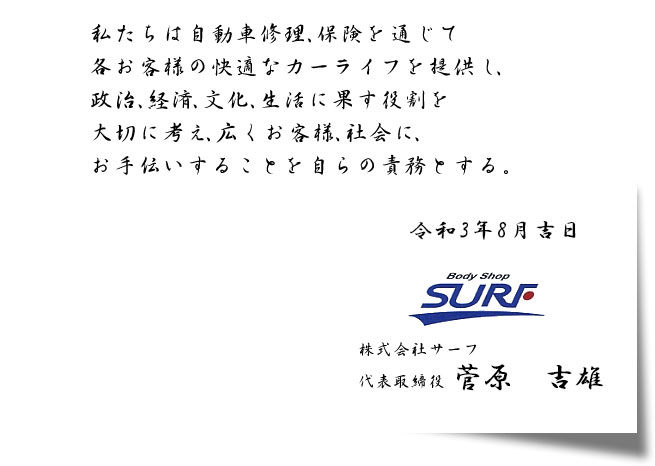 私たちは自動車修理、保険を通じて
各お客様の快適なカーライフを提供し、
政治、経済、文化、生活に果す役割を
大切に考え、広くお客様、社会に、
お手伝いすることを自らの責務とする。
令和3年8月吉日
Body Shop
SURF
株式会社サーフ
代表取締役 菅原 吉雄